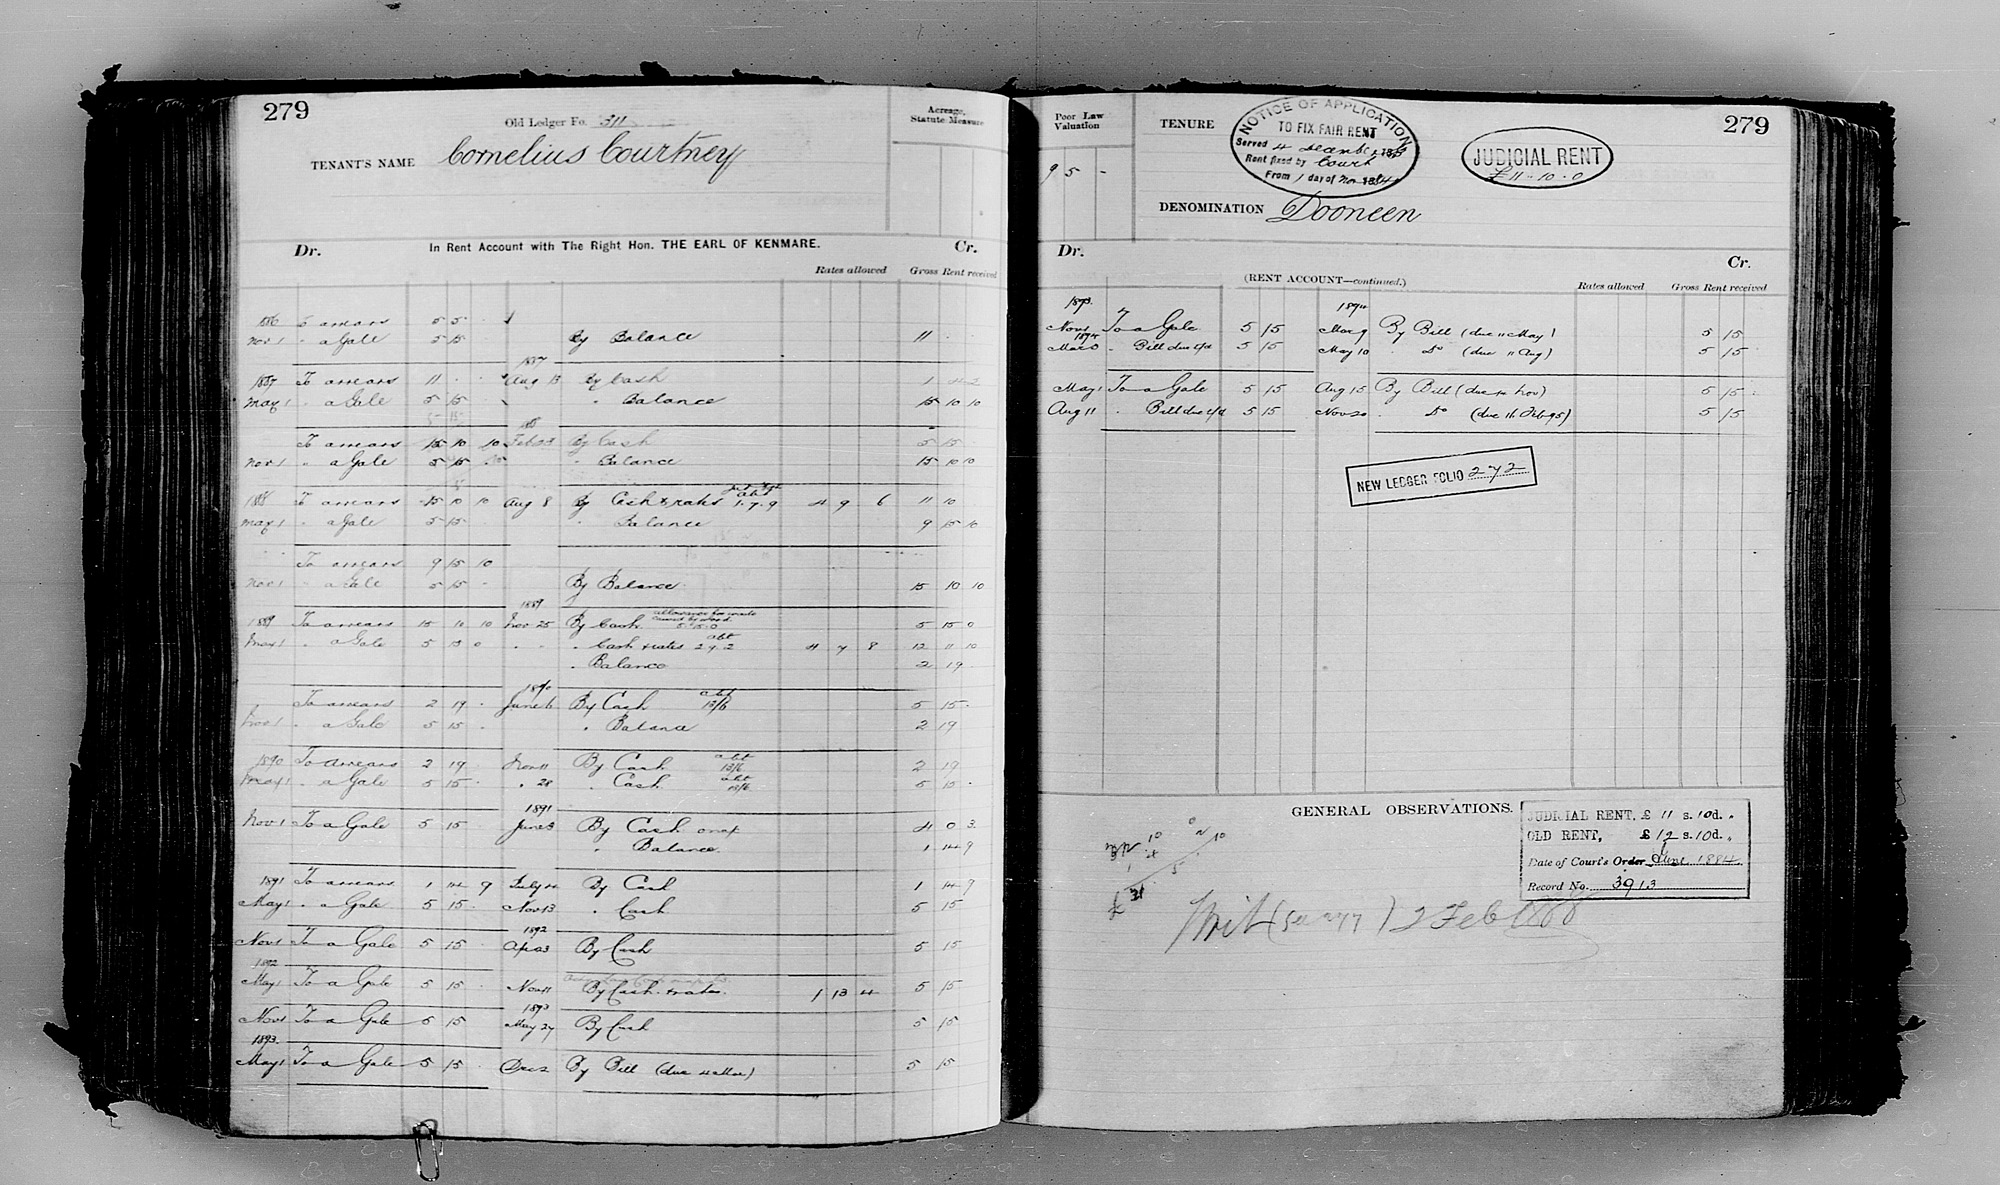 279
Old Ledger Fo. 311
TENANT'S NAME Cornelius Courtney
Acreage, Statute Measure
Dr. In Rent Account with The Right Hon. THE EARL OF KENMARE. Cr.
Rates allowed Gross Rent received
1886 To arrears 5 5 .
Nov 1 " a Gale 5 15 By Balance 11 .
1887
1887 To arrears 11 . . Aug 13 By Cash 1
May 1 " a Gale 5 15 " Balance 15 10 10
To arrears 15 10 10 Feb 23 By Cash 5 15
Nov 1 " a Gale 5 15 " Balance 15 10 10
1888 To arrears 15 10 10 Aug 8 By Cash & rates abt 1.7.9 4 9 6 11 10
May 1 " a Gale 5 15 " Balance 9 15 10
To arrears 9 15 10
Nov 1 " a Gale 5 15 By Balance 15 10 10
1889
1889 To arrears 15 10 10 Nov 25 By Cash 5 15 0
May 1 " a Gale 5 15 0 " " " Cash & rates abt 2 7 2 4 7 8 12 11 10
" Balance 2 19
1890
To arrears 2 19 . June 6 By Cash abt 13/6 5 15 .
Nov 1 " a Gale 5 15 . " Balance 2 19
1890 To arrears 2 19 Nov 11 By Cash abt 13/6 2 19
May 1 " a Gale 5 15 . " 28 " Cash abt 13/6 5 15 .
1891
Nov 1 To a Gale 5 15 June 3 By Cash on a/c 4 0 3
" Balance 1 14 9
1891 To arrears 1 14 9 July By Cash 1 14 9
May 1 " a Gale 5 15 . Nov 13 " Cash 5 15
1892
Nov 1 To a Gale 5 15 . Apr 23 By Cash 5 15
1892
May 1 To a Gale 5 15 . Nov 11 By Cash & rates. 1 13 4 5 15
1893
Nov 1 To a Gale 5 15 May 27 By Cash 5 15
1893.
May 1 To a Gale 5 15 Dec 2 By Bill (due 4 Mar) 5 15
Poor Law Valuation
9 5 -
TENURE
NOTICE OF APPLICATION
TO FIX FAIR RENT
Served 4
Rent fixed by Court
From 1 day of Nov 1884
JUDICIAL RENT
£11-10-0
279
DENOMINATION Dooneen
Dr. Cr.
(RENT ACCOUNT—continued.)
Rates allowed Gross Rent received
1893. 1894
Nov 1 To a Gale 5 15 Mar 9 By Bill (due 11 May) 5 15
1894
Mar " Bill due c/d 5 15 May 10 " Do (due 11 Aug) 5 15
May 1 To a Gale 5 15 Aug 15 By Bill (due Nov) 5 15
Aug 11 " Bill due c/d 5 15 Nov 20 " Do (due 16 Feb 95) 5 15
NEW LEDGER FOLIO 272
GENERAL OBSERVATIONS.
JUDICIAL RENT, £ 11 s. 10 d. "
OLD RENT, £ 12 s. 10 d. "
Date of Court's Order June 1884
Record No. 3913
Writ (see 277) 2 Feb 1888